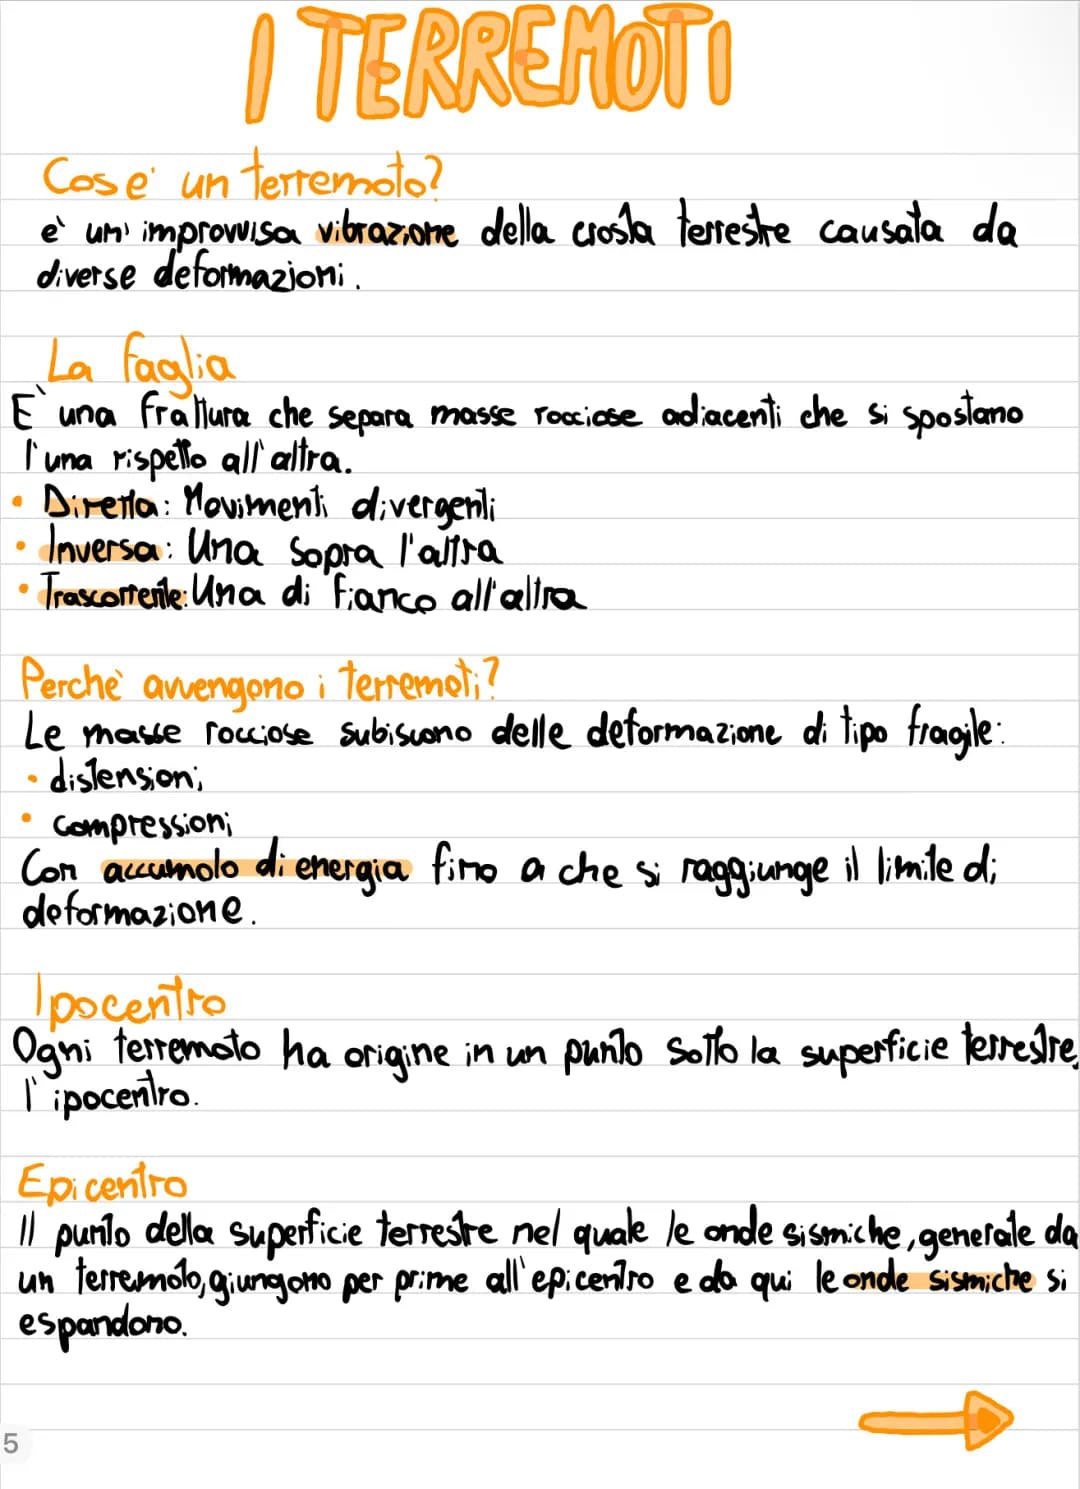 I TERREMOTI
Cos'e' un terremoto?
e' un' improvvisa vibrazione della crosta terrestre causata da
diverse deformazioni.
La faglia
E` una frattura che separa masse rocciose adiacenti che si spostano
l'una rispetto all'altra.
• Diretta: Movimenti divergenti
• Inversa: Una sopra l'altra
• Trascorrente: Una di fianco all'altra
Perchè avvengono i terremoti?
Le masse rocciose subiscono delle deformazione di tipo fragile:
• distensioni
• compressioni
Con accumolo di energia fino a che si raggiunge il limite di
deformazione.
Ipocentro
Ogni terremoto ha origine in un punto sotto la superficie terrestre,
l'ipocentro.
Epicentro
Il punto della superficie terrestre nel quale le onde sismiche, generate da
un terremoto, giungono per prime all'epicentro e da qui le onde sismiche si
espandono.
5